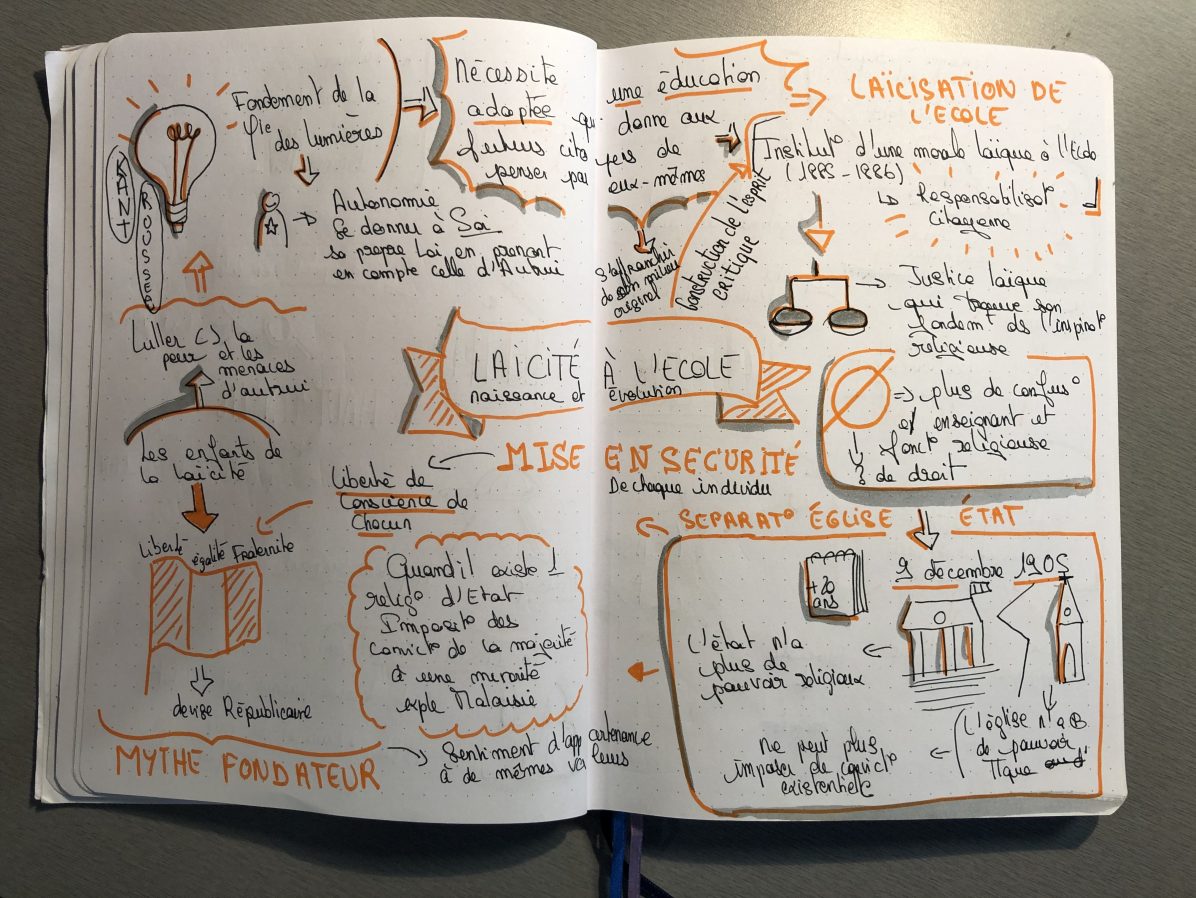 KANT
ROUSSEAU
Fondement de la
φie des lumières
Autonomie
Se donner à Soi
sa propre Loi en prenant
en compte celle d'Autrui
Nécessite une éducation
adaptée qui donne aux
futurs citoyens de
penser par eux-mêmes
S'affranchir
de son milieu
original
Construction de l'esprit
critique
LAÏCISATION DE
L'ECOLE
Institut° d'une morale laïque à l'Ecole
(1885-1886)
Responsabilisat°
citoyenne
Justice laïque
qui son
fondemt de l'inspirat°
religieuse
plus de confus°
e/ enseignant et
fonct° religieuse
de droit
LAICITÉ À L'ECOLE
naissance et évolution
Lutter C/ la
peur et les
menaces
d'autrui
Les enfants de
la laïcité
Liberté égalité Fraternité
devise Républicaine
MYTHE FONDATEUR
Sentiment d'appartenance
à de mêmes valeurs
MISE EN SECURITÉ
De chaque individu
Liberté de
Conscience de
Chacun
Quand il existe 1
relig° d'Etat
Imposit° des
convict° de la majorité
à une minorité
exple Malaisie
SEPARAT° ÉGLISE ÉTAT
9 décembre 1905
+20
ans
L'état n'a
plus de
pouvoir religieux
L'église n'a
de pouvoir
πique
Ne peut plus
imposer de convict°
existentielle